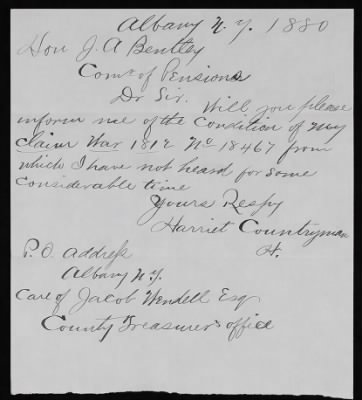 Albany N.Y. 1880
Hon J. A Bentley
Comr of Pensions
Dr Sir. Will you please
inform me of the Condition of my
claim War 1812 No 18467 from
which I have not heard for some
considerable time
Yours Respy
Harriet Countryman
H.
P.O. address
Albany N.Y.
Care of Jacob Wendell Esq
County Treasurer's office